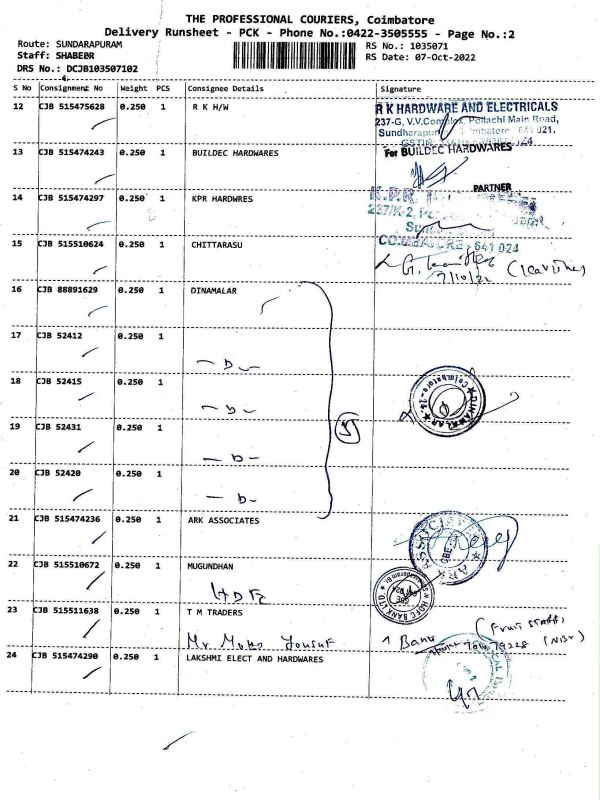 THE PROFESSIONAL COURIERS, Coimbatore
Delivery Runsheet - PCK - Phone No.:0422-3505555 - Page No.:2
Route: SUNDARAPURAM
RS No.: 1035071
Staff: SHABEER
RS Date: 07-Oct-2022
DRS No.: DCJB103507102
S No Consignment No Weight PCS Consignee Details Signature
12 CJB 515475628 0.250 1 R K H/W
R K HARDWARE AND ELECTRICALS
237-G, V.V.Complex, Pollachi Main Road,
641 021.
13 CJB 515474243 0.250 1 BUILDEC HARDWARES
For BUILDEC HARDWARES
PARTNER
14 CJB 515474297 0.250 1 KPR HARDWRES
K.P.R.
237/K-2,
COIMBATORE - 641 024
15 CJB 515510624 0.250 1 CHITTARASU
7/10/22
16 CJB 88891629 0.250 1 DINAMALAR
17 CJB 52412 0.250 1
— D —
18 CJB 52415 0.250 1
— D —
DINAMALAR
Coimbatore-14.
19 CJB 52431 0.250 1
5
— D —
20 CJB 52420 0.250 1
— D —
21 CJB 515474236 0.250 1 ARK ASSOCIATES
ARK ASSOCIATES
CBE-
22 CJB 515510672 0.250 1 MUGUNDHAN
HDFC
HDFC BANK LTD
23 CJB 515511638 0.250 1 T M TRADERS
Mr
Bank
24 CJB 515474290 0.250 1 LAKSHMI ELECT AND HARDWARES